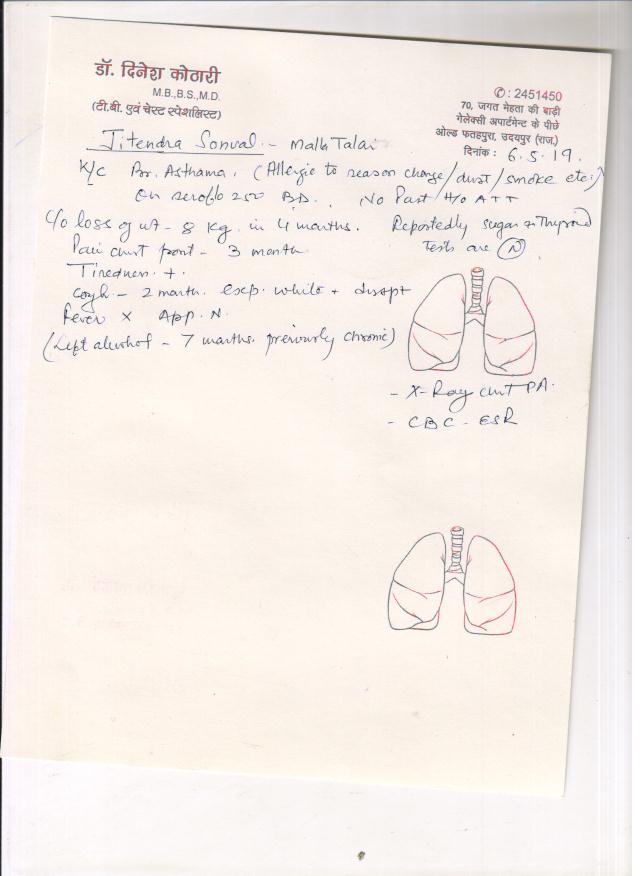 डॉ. दिनेश कोठारी
M.B.,B.S.,M.D.
(टी.बी. एवं चेस्ट स्पेशलिस्ट)
✆ : 2451450
70, जगत मेहता की बाड़ी
गेलेक्सी अपार्टमेन्ट के पीछे
ओल्ड फतहपुरा, उदयपुर (राज.)
दिनांक : 6.5.19.
Jitendra Sonval - Malla Talai
K/C Br. Asthama. (Allergic to season change/dust/smoke etc.)
On seroflo 250 BD. No Past H/o ATT
C/o loss of wt - 8 Kg. in 4 months. Reportedly sugar + Thyroid
Tests are N
Pain chest front - 3 month
Tiredness +.
Cough - 2 month. exp. white +
Fever × App. N.
(Left alcohol - 7 months. previously chronic)
- X-Ray chest PA.
- CBC - ESR